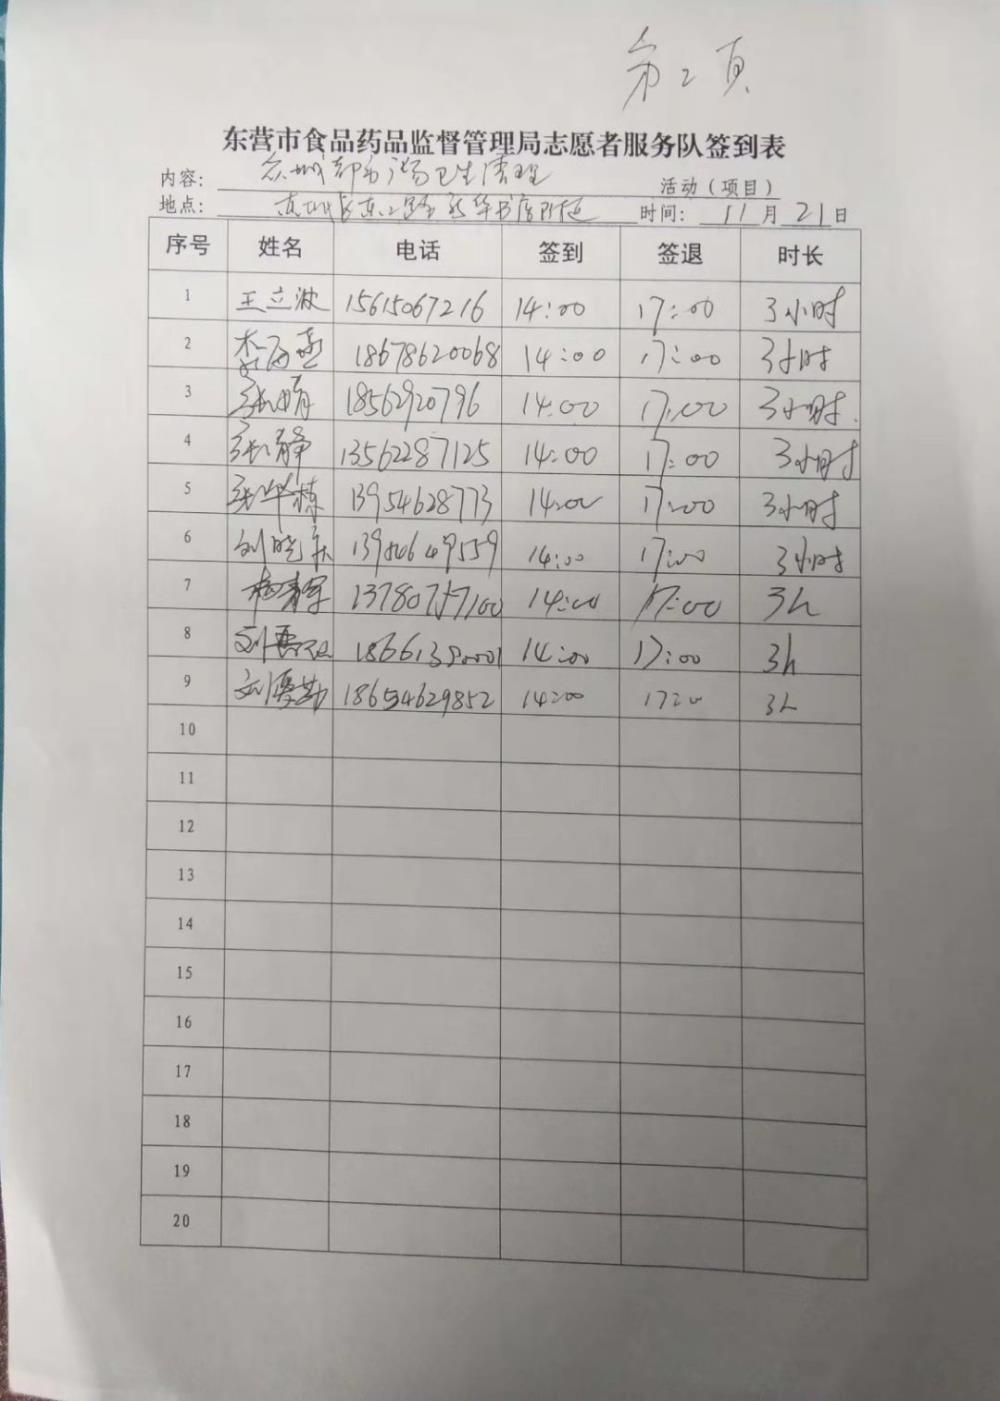 第2页
东营市食品药品监督管理局志愿者服务队签到表
内容: 卫生清理 活动(项目)
地点: 新华书店附近 时间: 11月21日
序号 姓名 电话 签到 签退 时长
1 王立波 15615067216 14:00 17:00 3小时
2 18678620068 14:00 17:00 3小时
3 张晴 18562920796 14:00 17:00 3小时.
4 张静 13562287125 14:00 17:00 3小时
5 张华栋 13954628773 14:00 17:00 3小时
6 刘晓 14:00 17:00 3小时
7 14:00 17:00 3h
8 刘 14:00 17:00 3h
9 刘 18654629852 14:00 3h
10
11
12
13
14
15
16
17
18
19
20